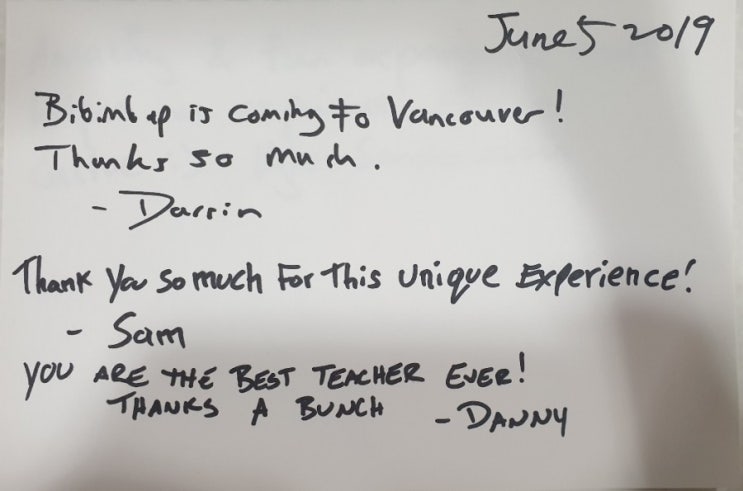 June 5 2019
Bibimbap is coming to Vancouver!
Thanks so much.
- Darrin
Thank you so much For This Unique Experience!
- Sam
YOU ARE THE BEST TEACHER EVER!
THANKS A BUNCH - DANNY